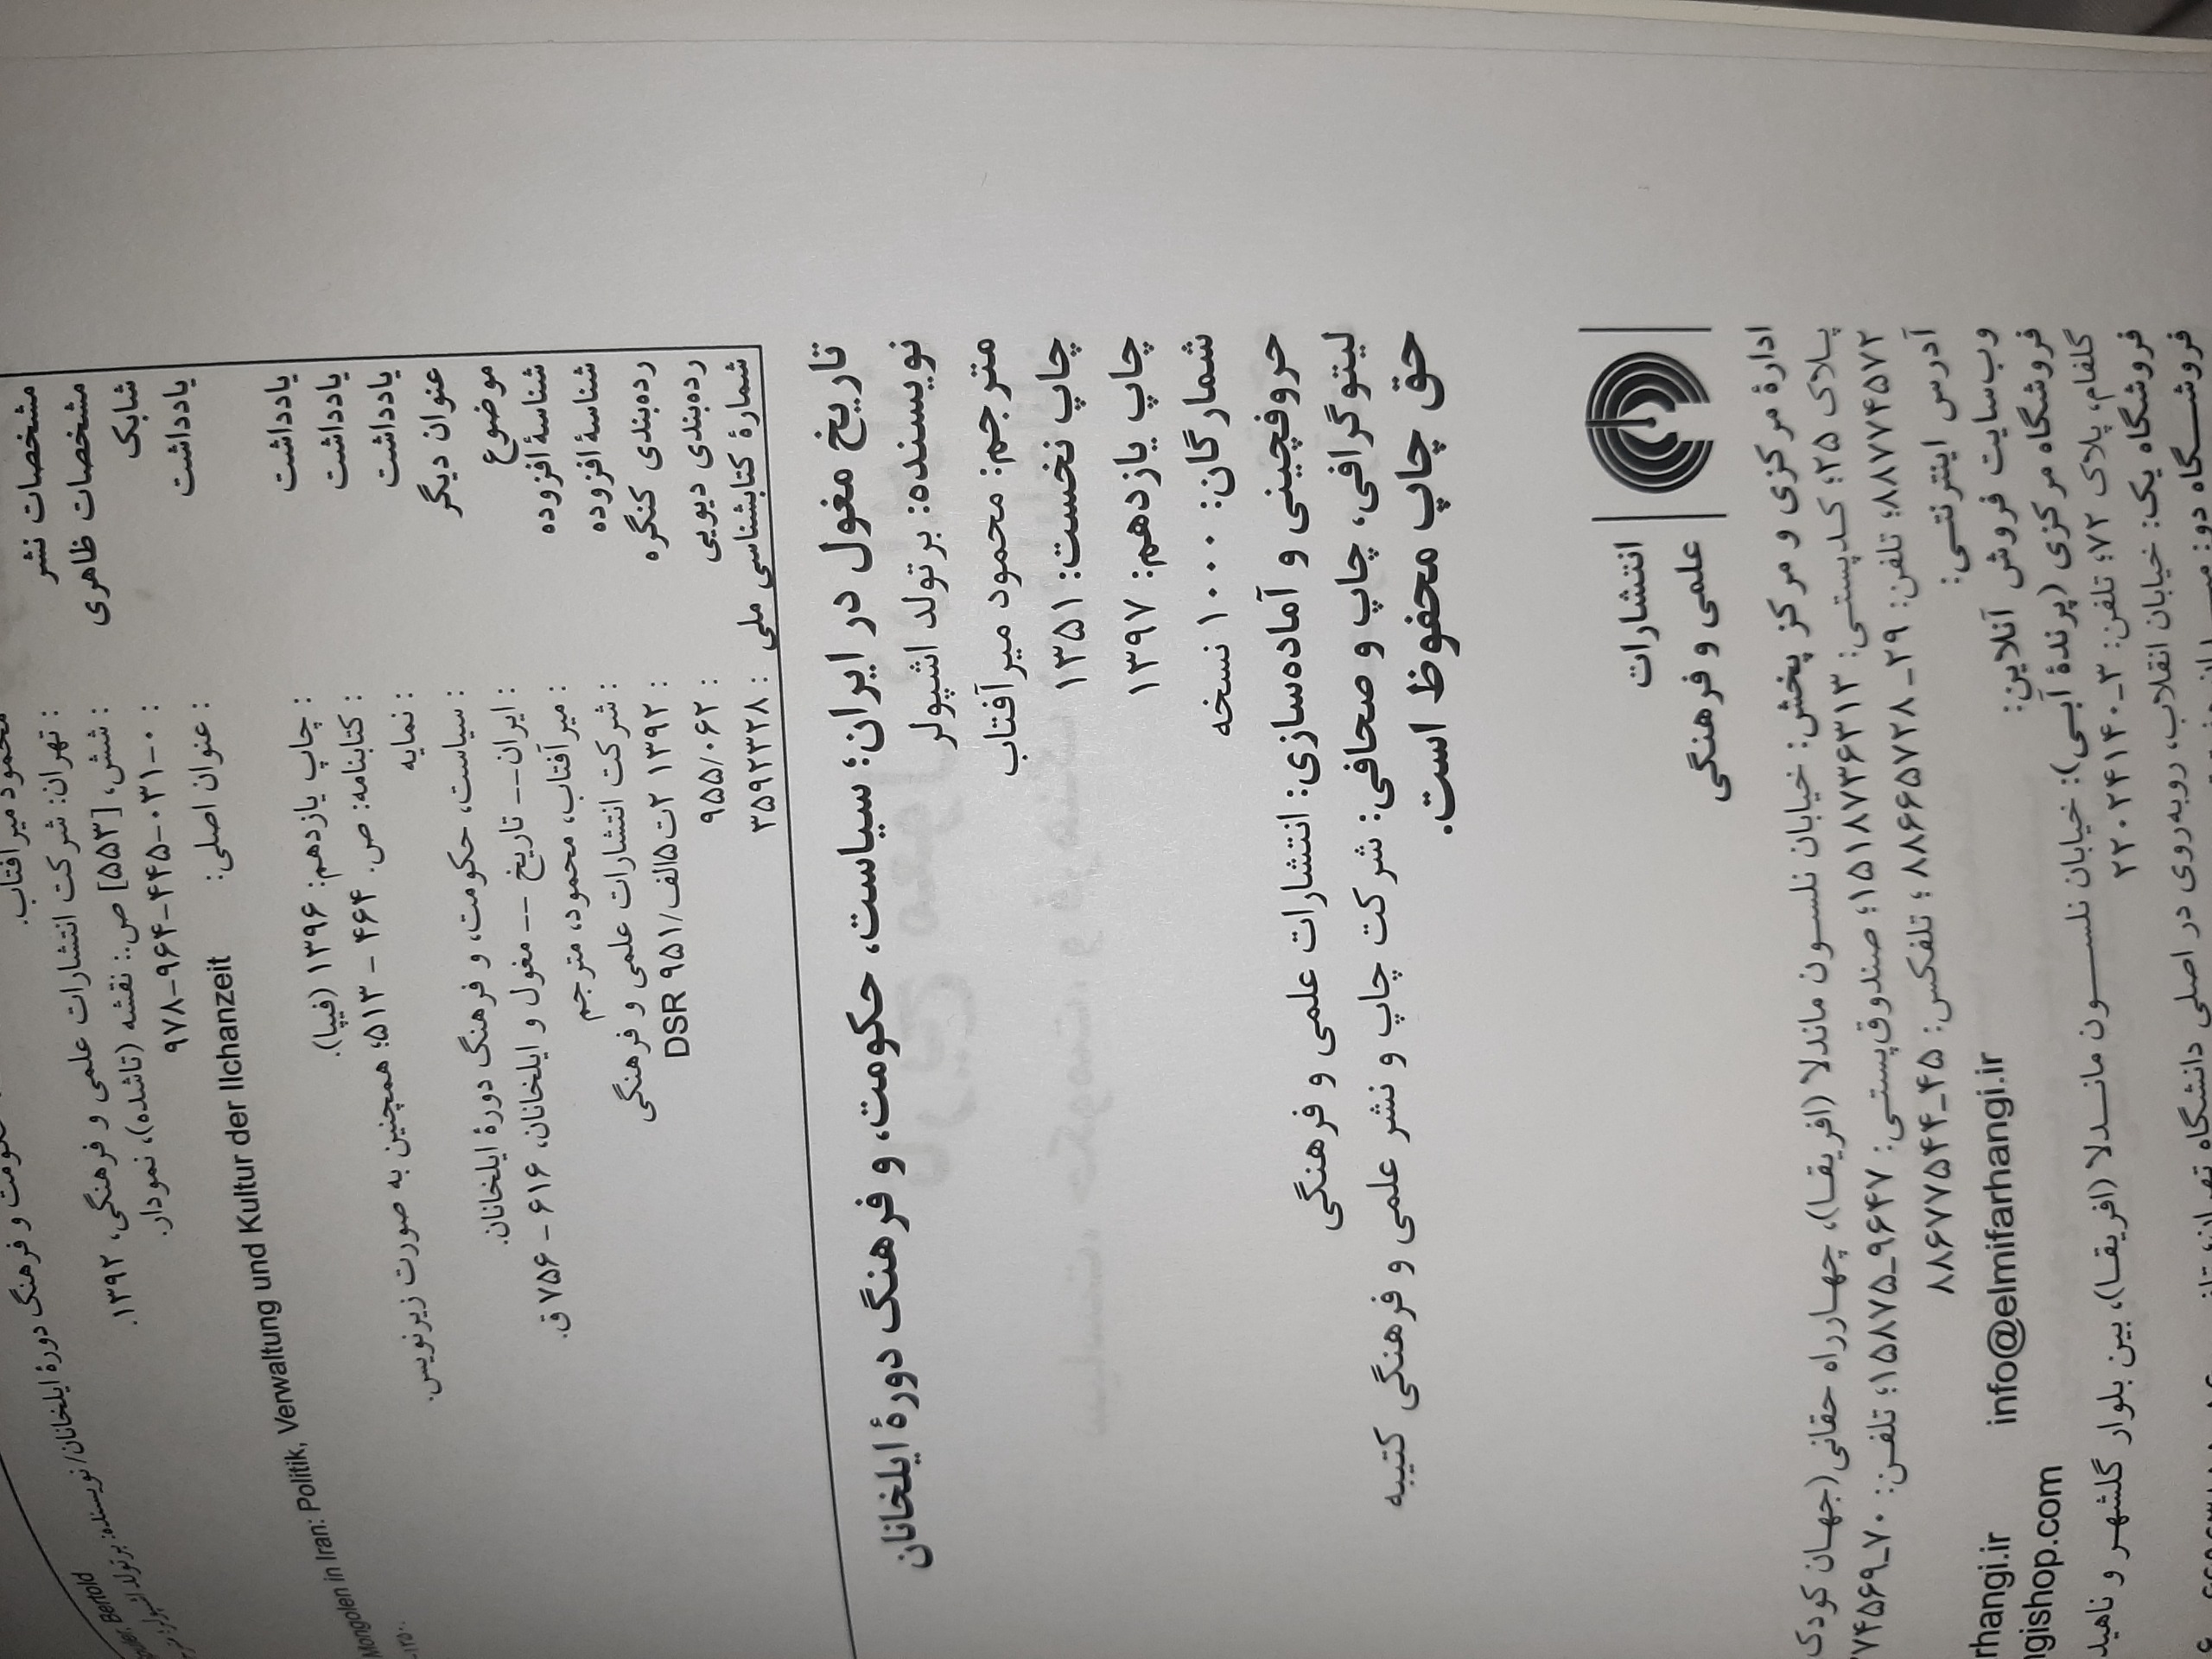 محمود میرآفتاب.
مشخصات نشر : تهران: شرکت انتشارات علمی و فرهنگی، ۱۳۹۲.
مشخصات ظاهری : شش، [۵۵۳] ص.: نقشه (تاشده)، نمودار.
شابک : ۹۷۸-۹۶۴-۴۴۵-۰۳۱-۰
یادداشت : عنوان اصلی: Mongolen in Iran: Politik, Verwaltung und Kultur der Ilchanzeit
یادداشت : چاپ یازدهم: ۱۳۹۶ (فیپا).
یادداشت : کتابنامه: ص. ۴۶۴ - ۵۱۳؛ همچنین به صورت زیرنویس.
یادداشت : نمایه
عنوان دیگر : سیاست، حکومت، و فرهنگ دورهٔ ایلخانان.
موضوع : ایران-- تاریخ -- مغول و ایلخانان، ۶۱۶ - ۷۵۶ ق.
شناسهٔ افزوده : میرآفتاب، محمود، مترجم
شناسهٔ افزوده : شرکت انتشارات علمی و فرهنگی
رده‌بندی کنگره : DSR ۹۵۱/الف۵ت۲ ۱۳۹۲
رده‌بندی دیویی : ۹۵۵/۰۶۲
شمارهٔ کتابشناسی ملی : ۳۵۹۲۳۲۸
تاریخ مغول در ایران؛ سیاست، حکومت، و فرهنگ دورهٔ ایلخانان
نویسنده: برتولد اشپولر
مترجم: محمود میرآفتاب
چاپ نخست: ۱۳۵۱
چاپ یازدهم: ۱۳۹۷
شمارگان: ۱۰۰۰ نسخه
حروفچینی و آماده‌سازی: انتشارات علمی و فرهنگی
لیتوگرافی، چاپ و صحافی: شرکت چاپ و نشر علمی و فرهنگی کتیبه
حق چاپ محفوظ است.
انتشارات
علمی و فرهنگی
ادارهٔ مرکزی و مرکز پخش: خیابان نلسون ماندلا (افریقا)، چهارراه حقانی (جهان کودک
پلاک ۲۵؛ کدپستی: ۱۵۱۸۷۳۶۳۱۳؛ صندوق‌پستی: ۹۶۴۷-۱۵۸۷۵؛ تلفن: ۷۰-
۸۸۷۷۴۵۷۲؛ تلفن: ۲۹-۸۸۶۶۵۷۲۸؛ تلفکس: ۴۵-۸۸۶۷۷۵۴۴
آدرس اینترنتی: info@elmifarhangi.ir rhangi.ir
وب‌سایت فروش آنلاین: gishop.com
فروشگاه مرکزی (پرندهٔ آبی): خیابان نلسون ماندلا (افریقا)، بین بلوار گلشهر و ناهید
گلفام، پلاک ۷۲؛ تلفن: ۳-۲۲۰۲۴۱۴۰
فروشگاه یک: خیابان انقلاب، روبه‌روی در اصلی دانشگاه تهران؛
فروشگاه دو: